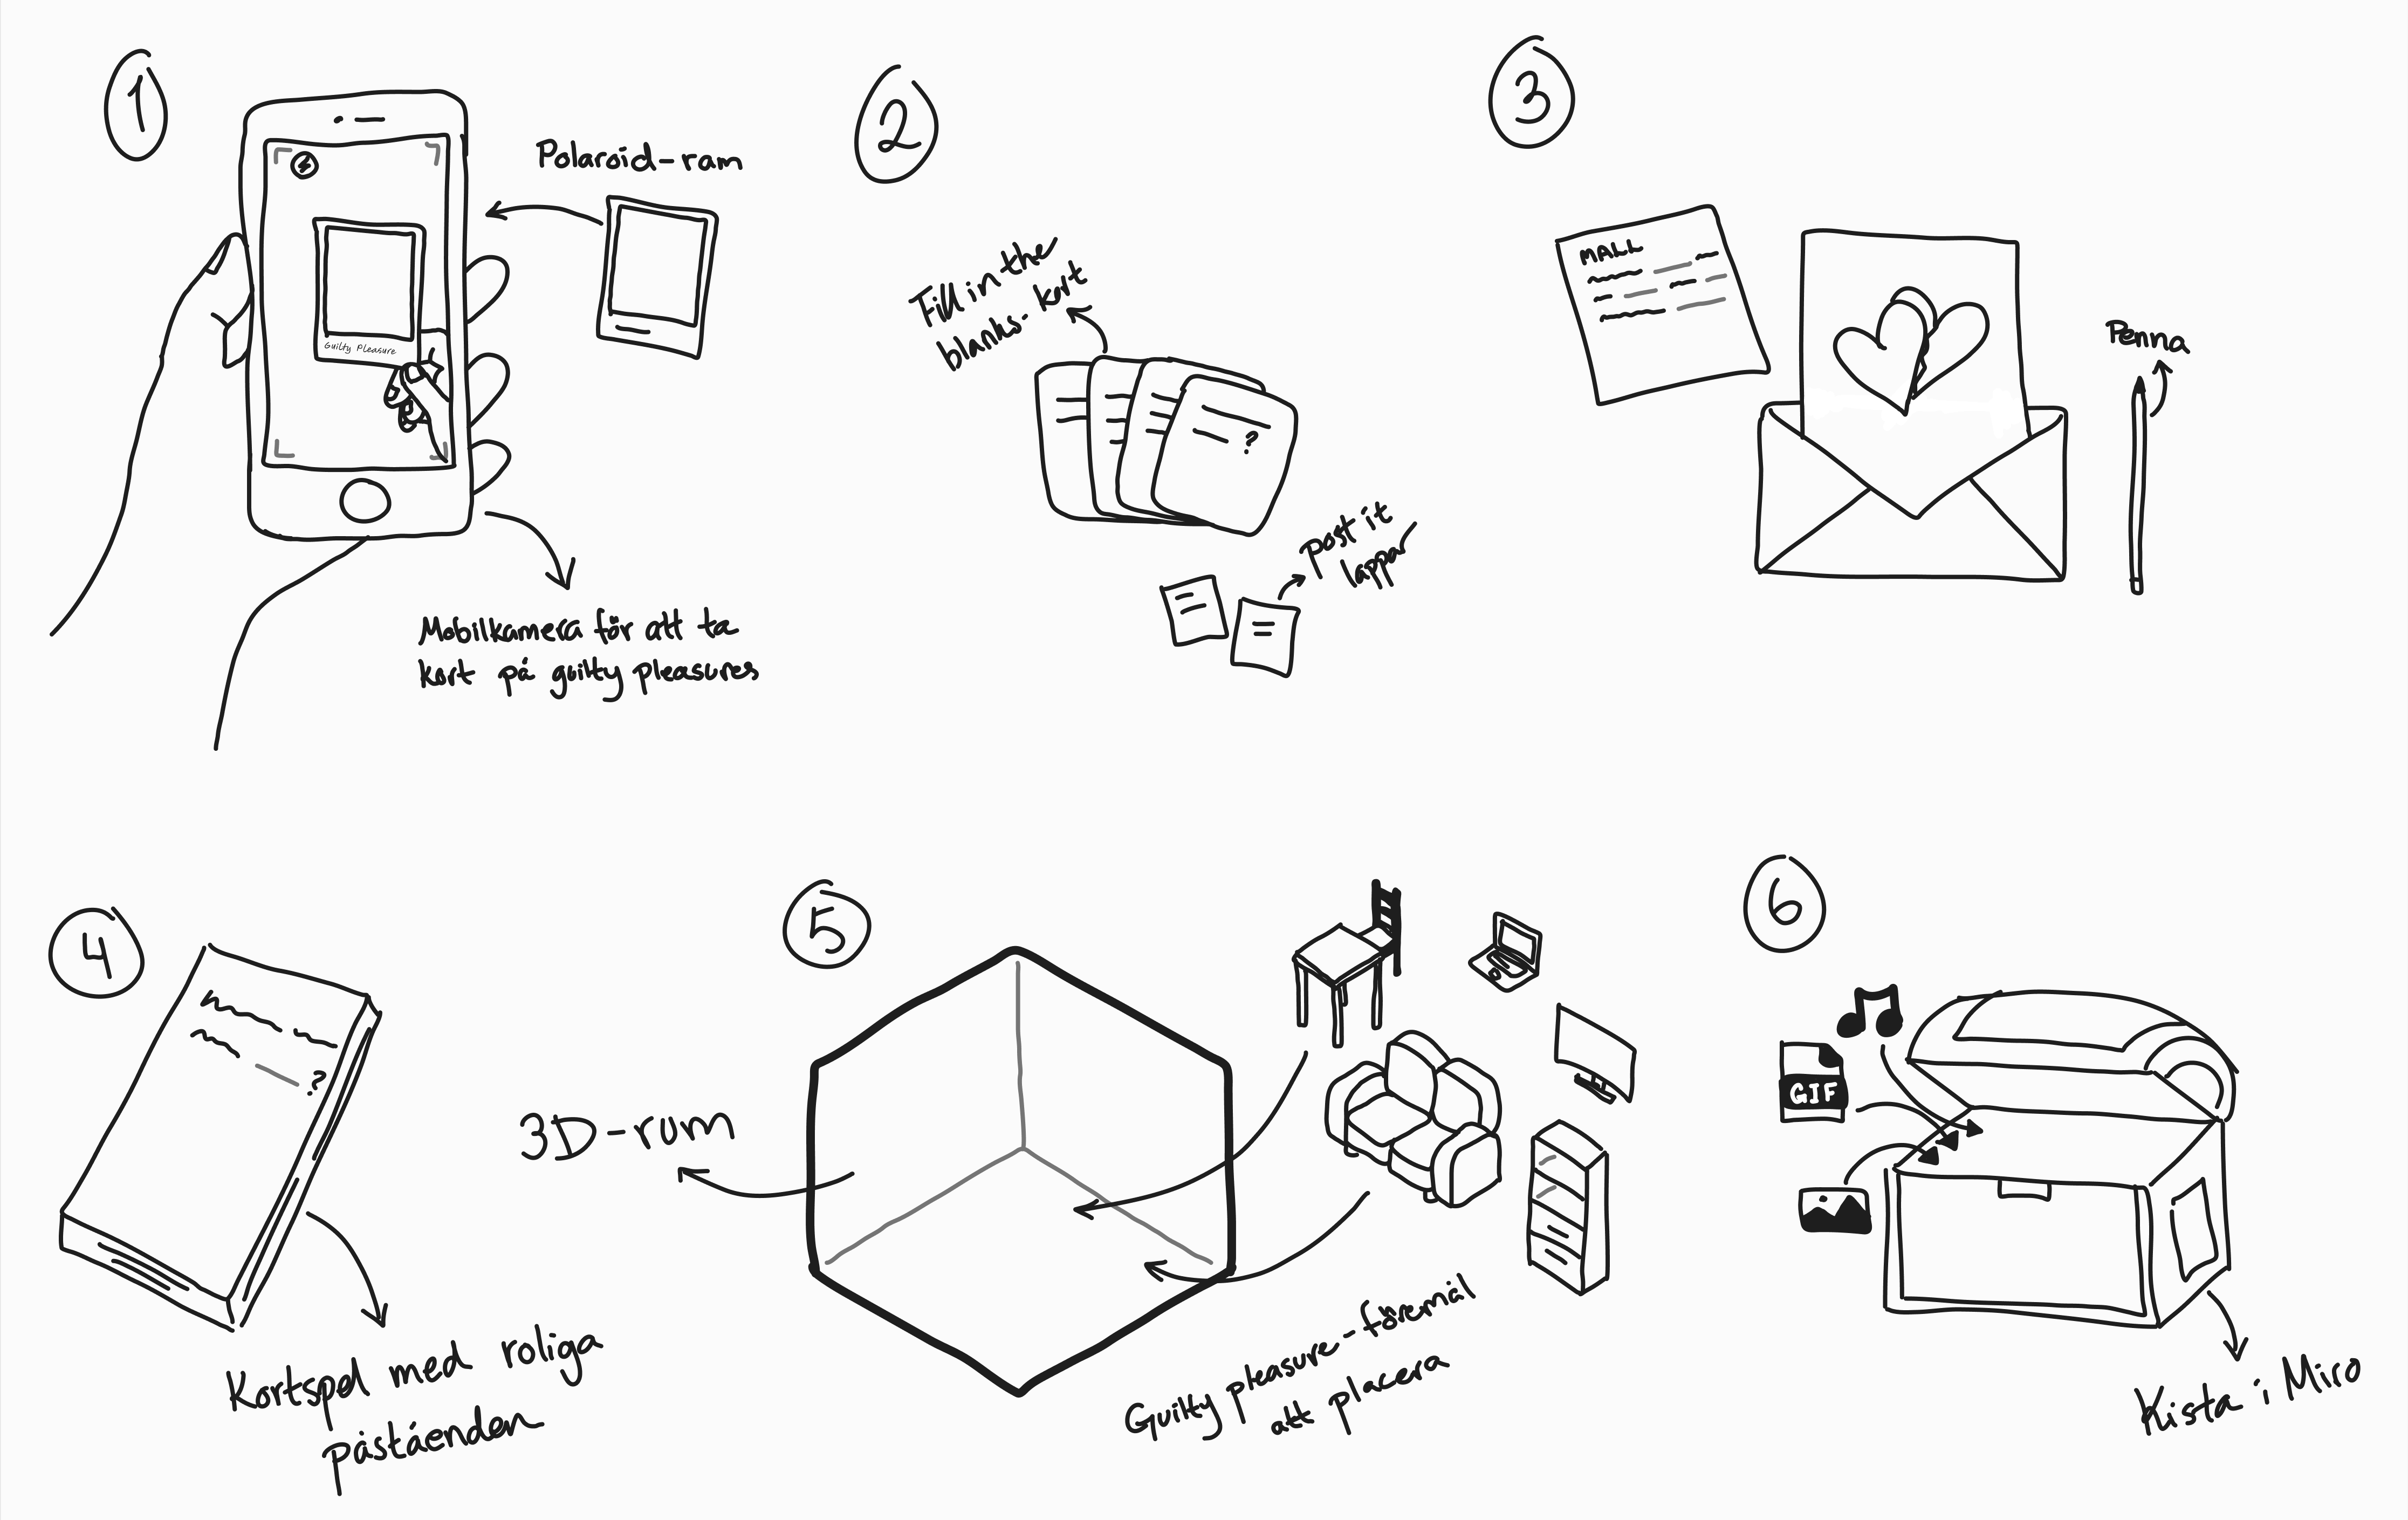 1
Polaroid-ram
Guilty Pleasure
Mobilkamera för att ta
kort på guilty pleasures
2
Fill in the
blanks-kort
Post it
lappar
3
MALL
Penna
4
?
Kortspel med roliga
påståenden
5
3D-rum
Guilty pleasure-föremål
att placera
6
GIF
Kista i Miro
?